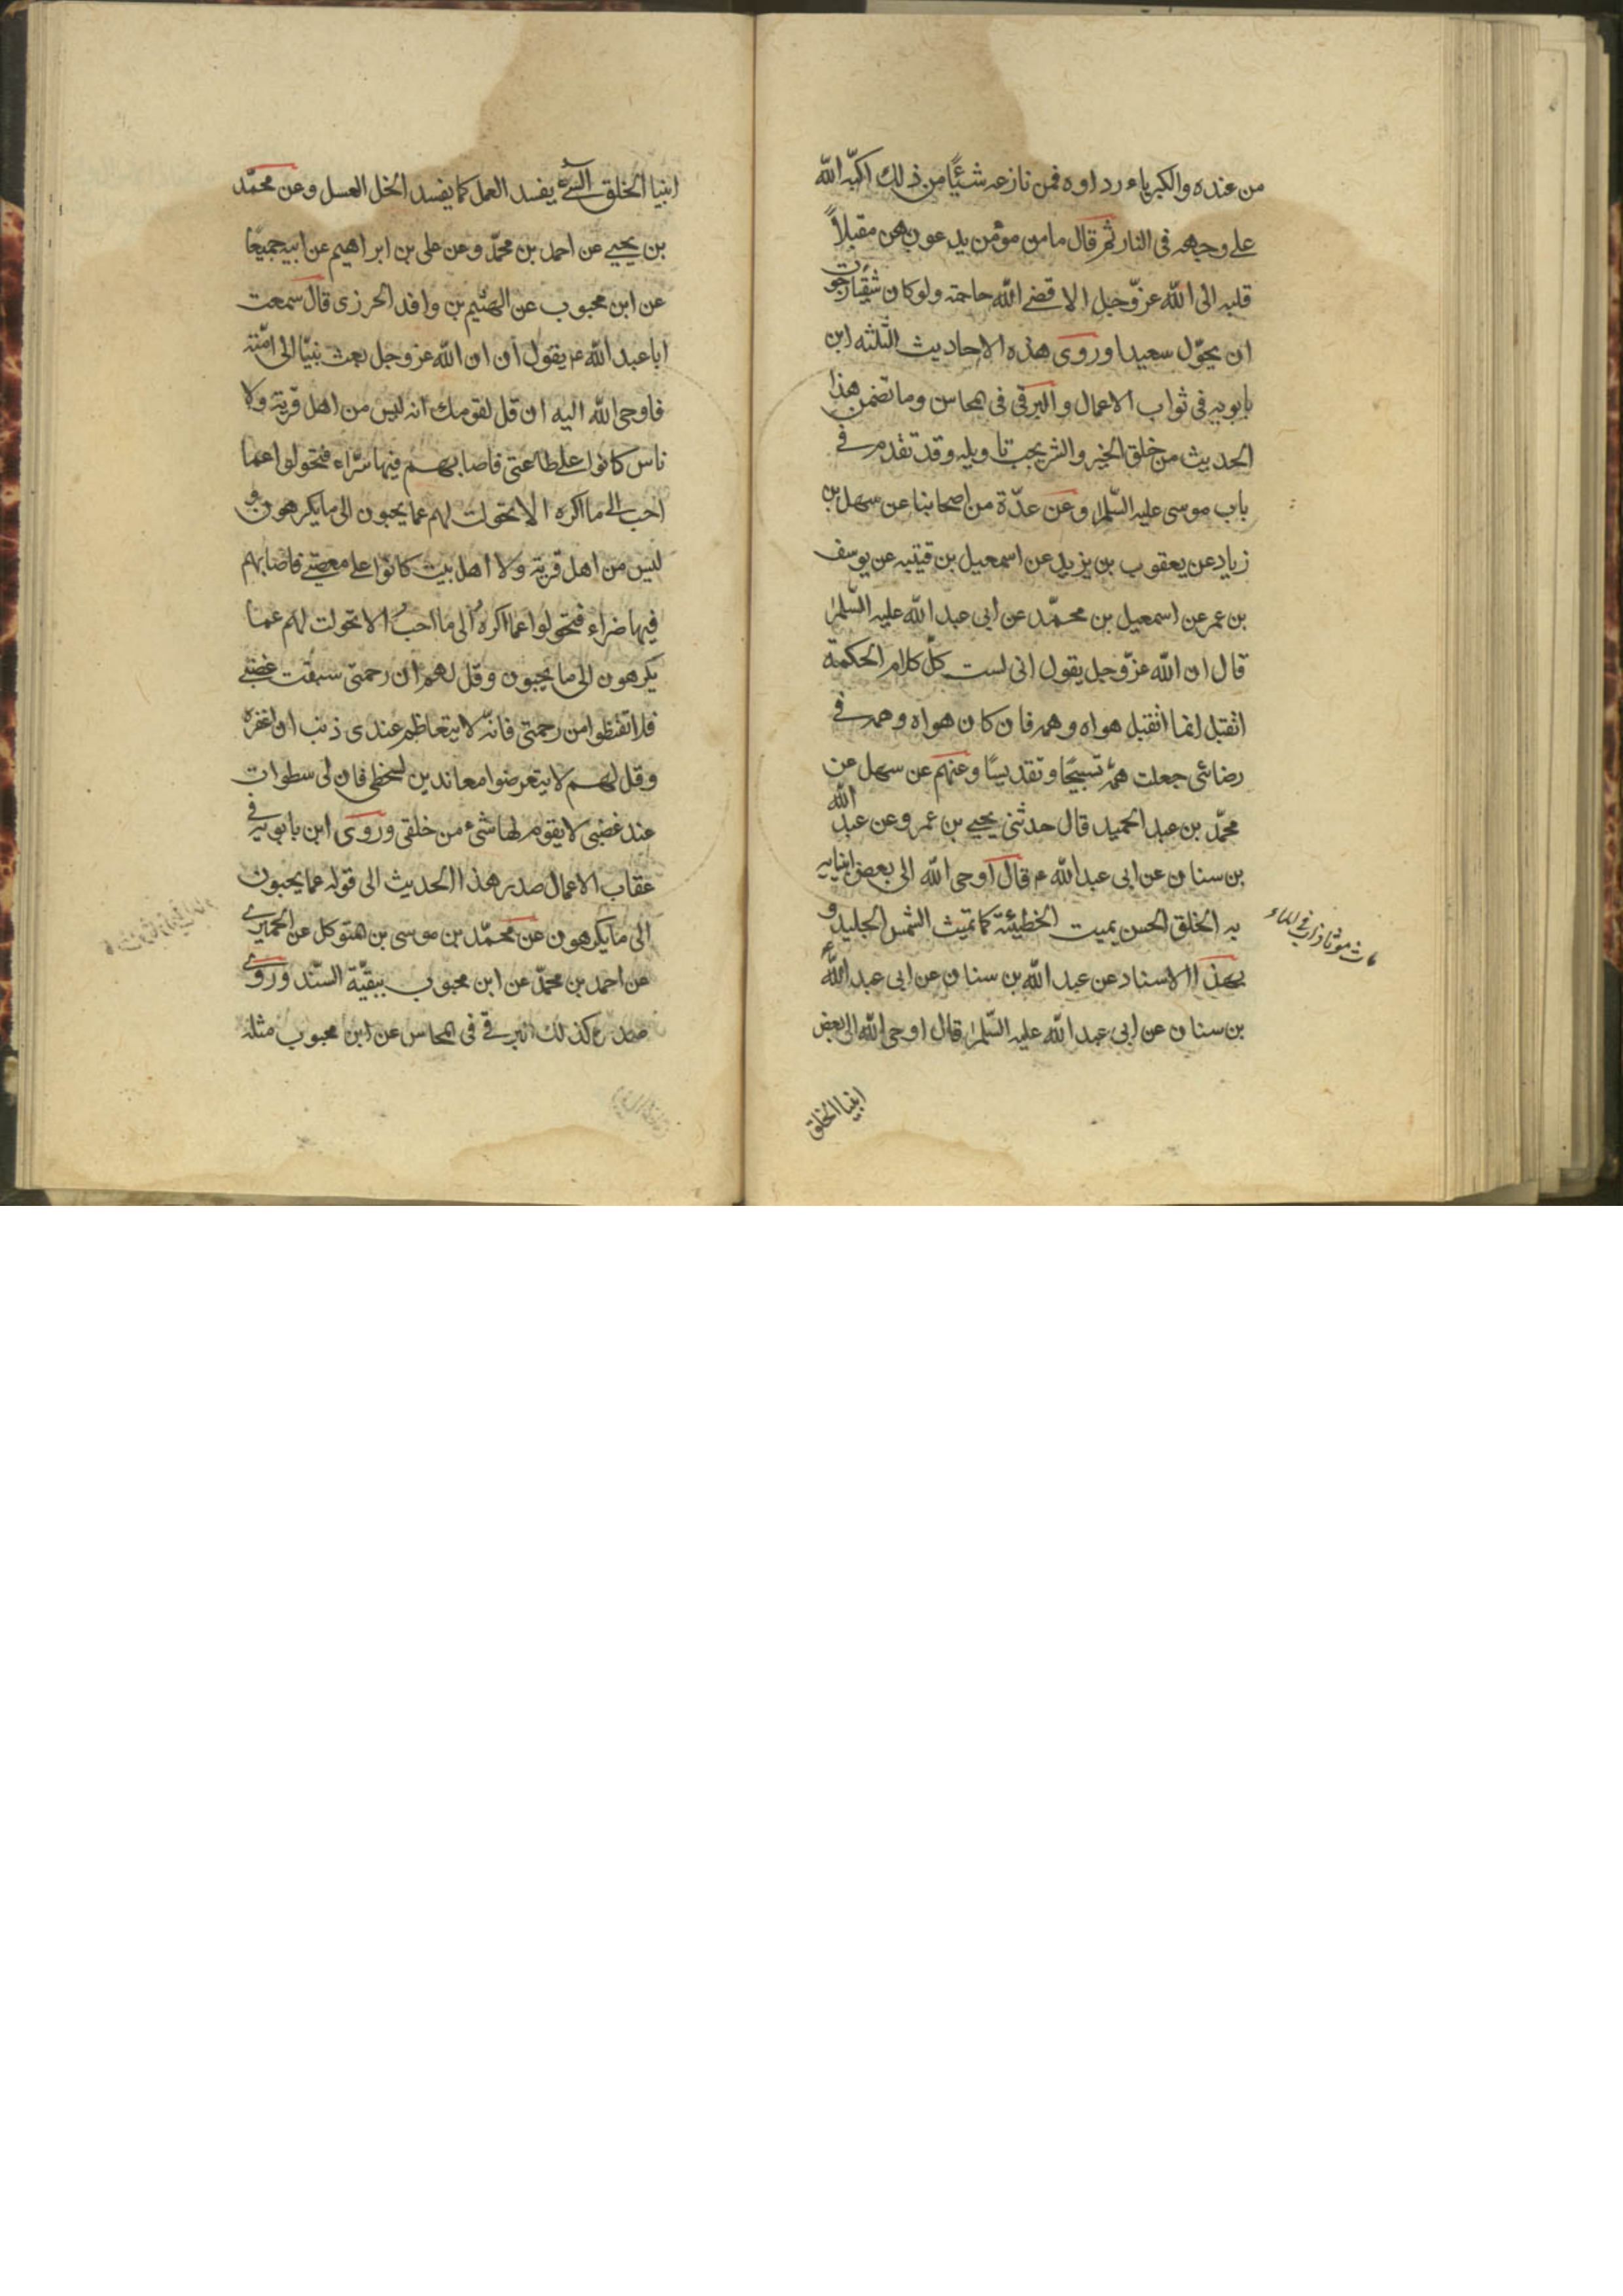 من عنده والكبرياء رداوه فمن نازعه شيئًا من ذلك اكبّه الله
على وجهه فى النار ثم قال ما من مؤمن يدعو بهن مقبلاً
قلبه الى الله عزّوجل الا قضى الله حاجته ولو كان شقيًّا رجوت
ان يحوّل سعيدا وروى هذه الاحاديث الثلثه ابن
بابويه فى ثواب الاعمال والبرقى فى المحاسن وما تضمن هذا
الحديث من خلق الخير والشر يجب تاويله وقد تقدم فى
باب موسى عليه السّلم وعن عدّة من اصحابنا عن سهل بن
زياد عن يعقوب بن يزيد عن اسمعيل بن قتيبه عن يوسف
بن عمر عن اسمعيل بن محمّد عن ابى عبد الله عليه السّلم
قال ان الله عزّوجل يقول انى لست كلّ كلام الحكمة
اتقبل انما اتقبل هواه وهمه فان كان هواه وهمه فى
رضائى جعلت همّه تسبيحًا وتقديسًا وعنهم عن سهل عن
محمّد بن عبد الحميد قال حدثنى يحيى بن عمرو عن عبد الله
بن سنان عن ابى عبد الله ع قال اوحى الله الى بعض انبيا
يه الخلق الحسن يميت الخطيئة كما تميث الشمس الجليد و
بهذا الاسناد عن عبد الله بن سنان عن ابى عبد الله ع
بن سنان عن ابى عبد الله عليه السّلم قال اوحى الله الى بعض
انبيا الخلق
ماث موثا ذاب فى الماء
انبيا الخلق السّىء يفسد العمل كما يفسد الخل العسل وعن محمّد
بن يحيى عن احمد بن محمّد وعن على بن ابراهيم عن ابيه جميعًا
عن ابن محبوب عن الهيثم بن واقد الحرزى قال سمعت
ابا عبد الله ع يقول ان ان الله عز وجل بعث نبيّا الى امّته
فاوحى الله اليه ان قل لقومك انه ليس من اهل قرية ولا
ناس كانوا على طاعتى فاصابهم فيها سرّاء فتحولوا عما
احب الى ما اكره الا تحولت لهم عما يحبون الى ما يكرهون و
ليس من اهل قرية ولا اهل بيت كانوا على معصيتى فاصابهم
فيها ضراء فتحولوا عما اكره الى ما احبُّ الا تحولت لهم عما
يكرهون الى ما يحبون وقل لهم ان رحمتى سبقت غضبى
فلا تقنطوا من رحمتى فانّه لا يتعاظم عندى ذنب ان اغفره
وقل لهم لا يتعرضوا معاندين لسخطى فان لى سطوات
عند غضبى لا يقوم لها شىء من خلقى وروى ابن بابويه فى
عقاب الاعمال صدر هذا الحديث الى قوله عما يحبون
الى ما يكرهون عن محمّد بن موسى بن متوكل عن الحميرى
عن احمد بن محمّد عن ابن محبوب ببقيّة السّند وروى
صدره كذلك البرقى فى المحاسن عن ابن محبوب مثله